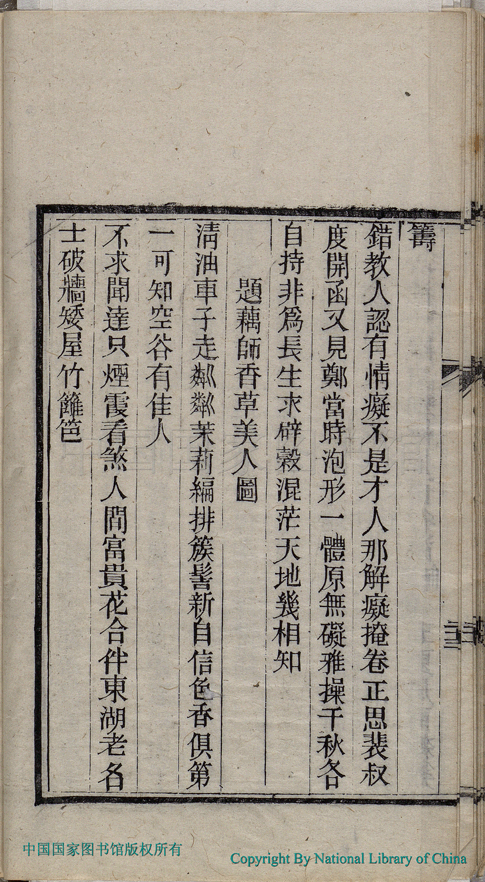 籌
錯教人認有情癡不是才人那解癡掩卷正思裴叔
度開函又見鄭當時泡形一體原無礙雅操千秋各
自持非爲長生求辟穀混茫天地幾相知
題藕師香草美人圖
清油車子走粼粼茉莉編排簇髻新自信色香俱第
一可知空谷有佳人
不求聞達只煙霞看煞人間富貴花合伴東湖老名
士破牆矮屋竹籬笆
中国国家图书馆版权所有
Copyright By National Library of China